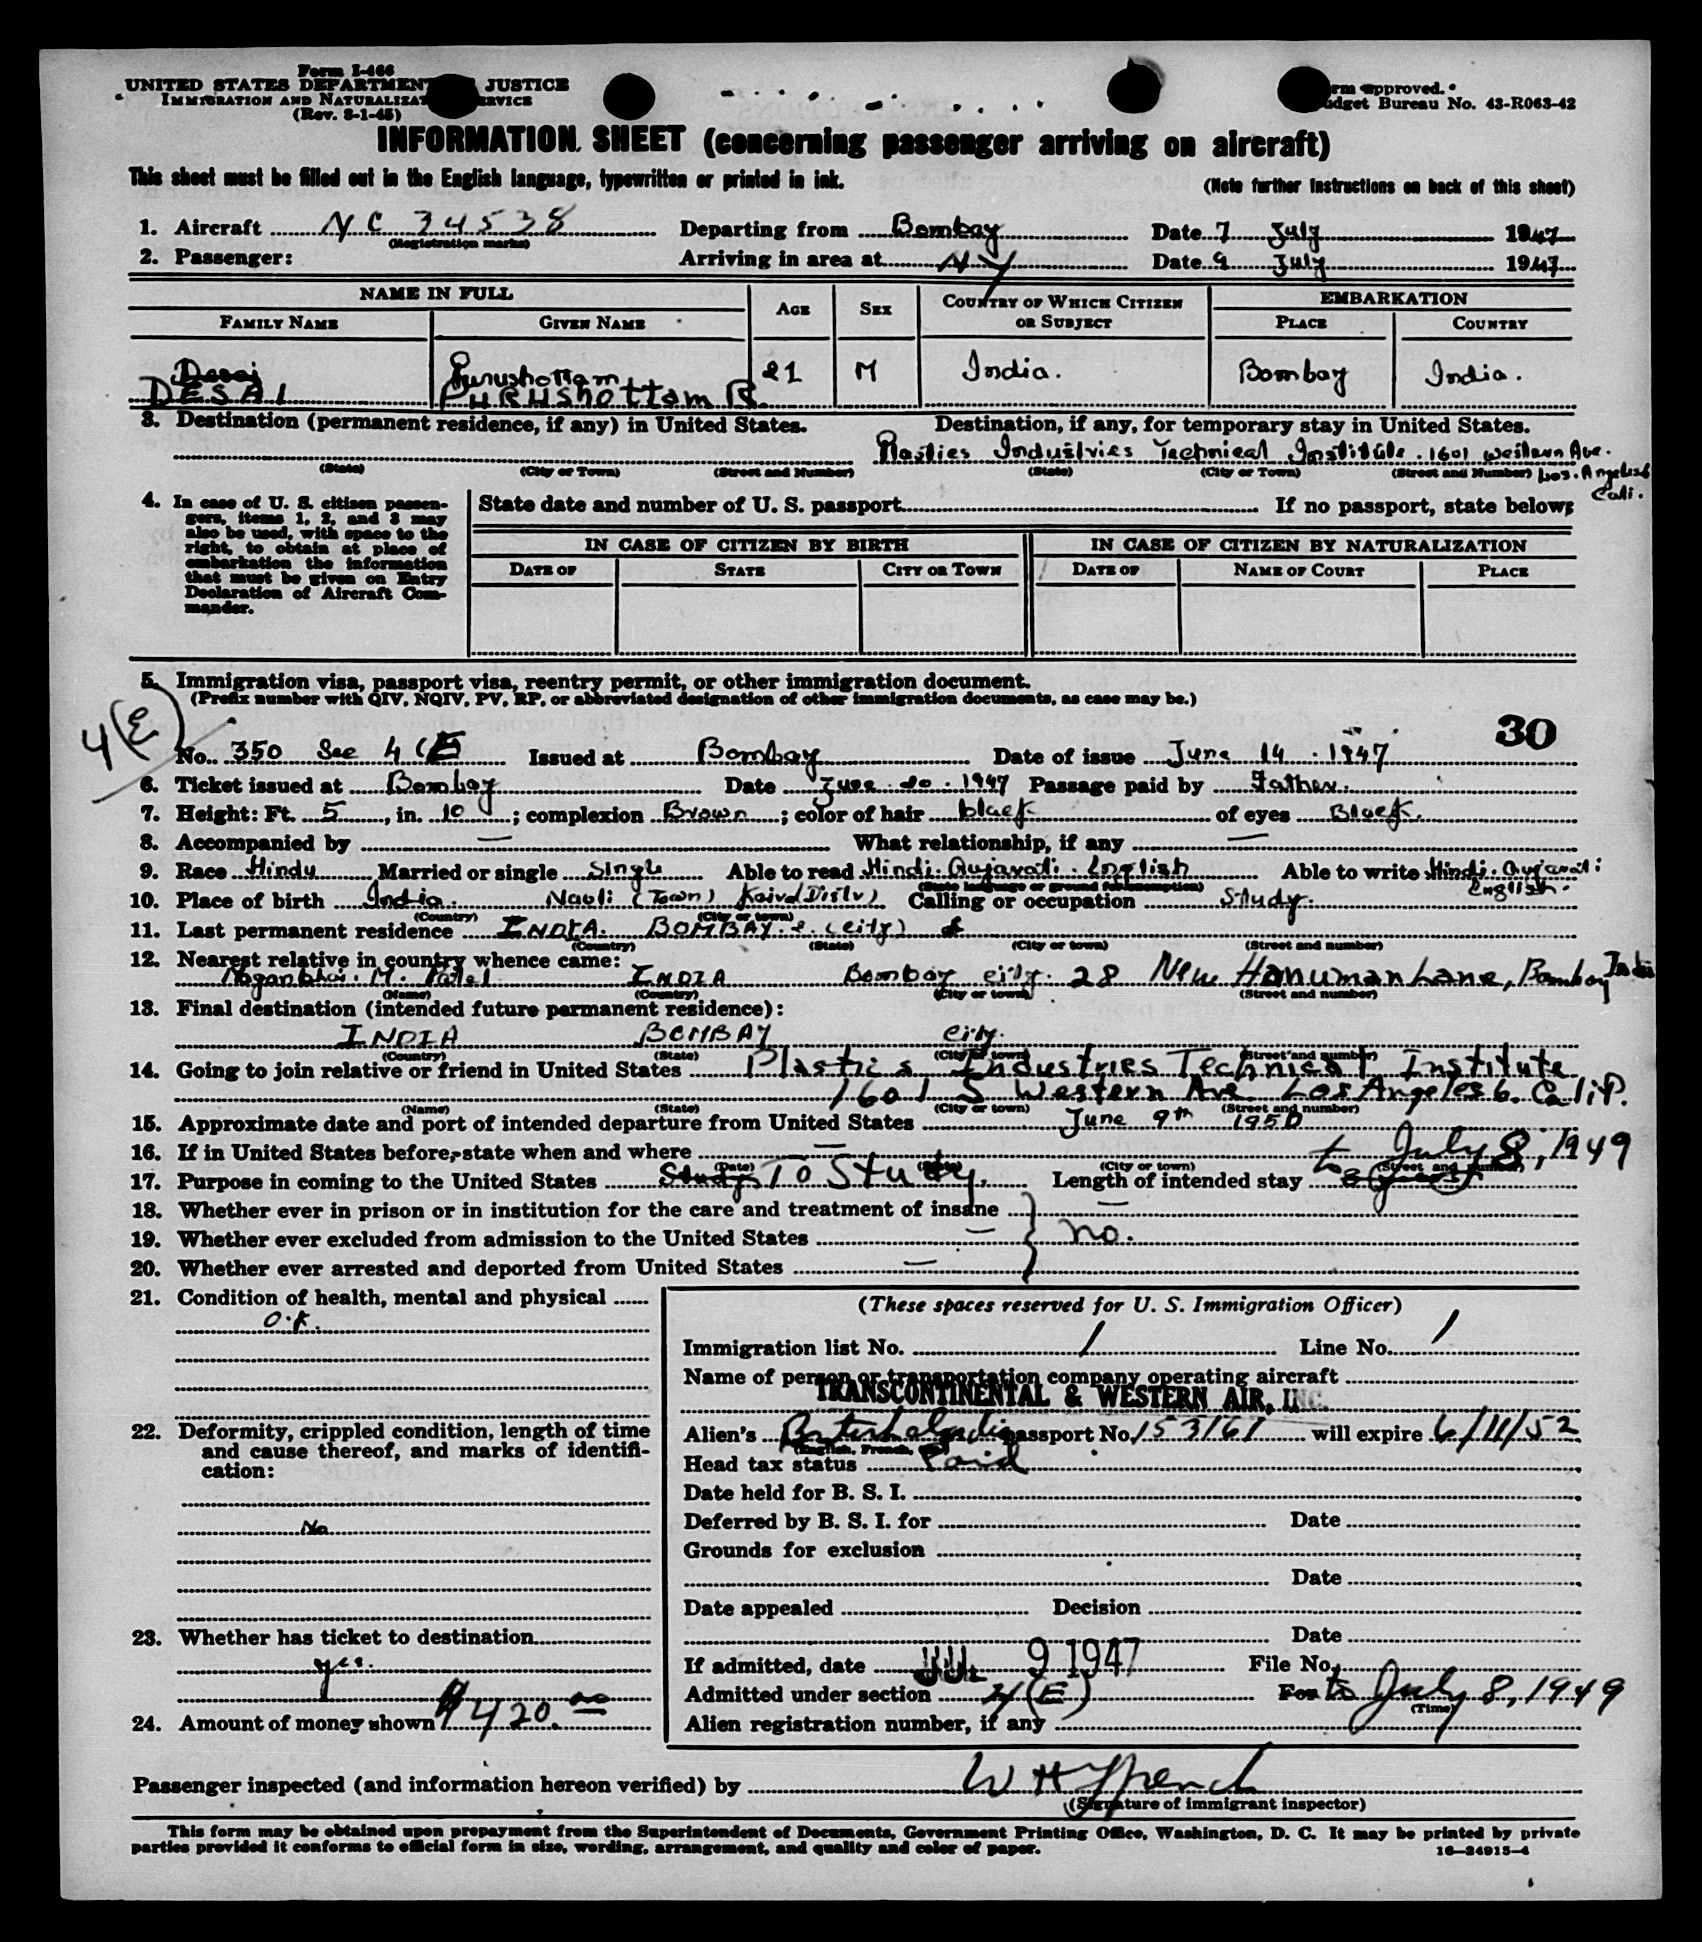 Form I-466
UNITED STATES DEPARTMENT JUSTICE
IMMIGRATION AND NATURALIZAT ERVICE
(Rev. 3-1-45)
rm approved.
dget Bureau No. 43-R063-42
INFORMATION SHEET (concerning passenger arriving on aircraft)
This sheet must be filled out in the English language, typewritten or printed in ink.
(Note further instructions on back of this sheet)
1. Aircraft NC 34538 Departing from Bombay Date 7 July 1947
(Registration marks)
2. Passenger: Arriving in area at NY Date 9 July 1947
NAME IN FULL AGE SEX COUNTRY OF WHICH CITIZEN OR SUBJECT EMBARKATION
FAMILY NAME GIVEN NAME PLACE COUNTRY
Desai Purushottam 21 M India. Bombay India.
DESAI PURUShottam R.
3. Destination (permanent residence, if any) in United States. Destination, if any, for temporary stay in United States.
Plastics Industries Technical Institute. 1601 Western Ave.
(State) (City or Town) (Street and Number) (State) (City or Town) (Street and Number) Los. Angeles
Cali.
4. In case of U. S. citizen passen-
gers, items 1, 2, and 3 may
also be used, with space to the
right, to obtain at place of
embarkation the information
that must be given on Entry
Declaration of Aircraft Com-
mander.
State date and number of U. S. passport If no passport, state below:
IN CASE OF CITIZEN BY BIRTH IN CASE OF CITIZEN BY NATURALIZATION
DATE OF STATE CITY OR TOWN DATE OF NAME OF COURT PLACE
5. Immigration visa, passport visa, reentry permit, or other immigration document.
(Prefix number with QIV, NQIV, PV, RP, or abbreviated designation of other immigration documents, as case may be.)
4(E)
30
No. 350 Sec 4 (E Issued at Bombay Date of issue June 14. 1947
6. Ticket issued at Bombay Date June 20. 1947 Passage paid by Father.
7. Height: Ft. 5, in. 10; complexion Brown; color of hair black of eyes Black.
8. Accompanied by — What relationship, if any —
9. Race Hindu Married or single Single Able to read Hindi. Gujarati. English Able to write Hindi. Gujarati:
(State language or ground for exemption) English.
10. Place of birth India. (Town) Calling or occupation Study.
(Country) (City or town)
11. Last permanent residence INDIA. BOMBAY. (city)
(Country) (State) (City or town) (Street and number)
12. Nearest relative in country whence came:
Maganbhai. M. Patel INDIA Bombay city. 28 New Hanuman Lane, Bombay India
(Name) (Country) (City or town) (Street and number)
13. Final destination (intended future permanent residence):
INDIA BOMBAY City.
(Country) (State) (City or town) (Street and number)
14. Going to join relative or friend in United States Plastics Industries Technical Institute
1601 S Western Ave Los Angeles 6. Calif.
(Name) (State) (City or town) (Street and number)
15. Approximate date and port of intended departure from United States June 9th 1950
16. If in United States before, state when and where —
(Date) (State) (City or town) (Street and number)
to July 8, 1949
17. Purpose in coming to the United States Study To Study. Length of intended stay
18. Whether ever in prison or in institution for the care and treatment of insane —
19. Whether ever excluded from admission to the United States — no.
20. Whether ever arrested and deported from United States —
21. Condition of health, mental and physical
O.K.
22. Deformity, crippled condition, length of time
and cause thereof, and marks of identifi-
cation:
No
23. Whether has ticket to destination
yes.
24. Amount of money shown $420.00
(These spaces reserved for U. S. Immigration Officer)
Immigration list No. 1 Line No. 1
Name of person or transportation company operating aircraft
TRANSCONTINENTAL & WESTERN AIR, INC.
Alien's passport No. 153161 will expire 6/11/52
(English, French, etc.)
Head tax status Paid
Date held for B. S. I.
Deferred by B. S. I. for Date
Grounds for exclusion
Date
Date appealed Decision
Date
If admitted, date JUL 9 1947 File No.
Admitted under section 4(E) For to July 8, 1949
(Time)
Alien registration number, if any
Passenger inspected (and information hereon verified) by
(Signature of immigrant inspector)
This form may be obtained upon prepayment from the Superintendent of Documents, Government Printing Office, Washington, D. C. It may be printed by private
parties provided it conforms to official form in size, wording, arrangement, and quality and color of paper.
16—24915-4